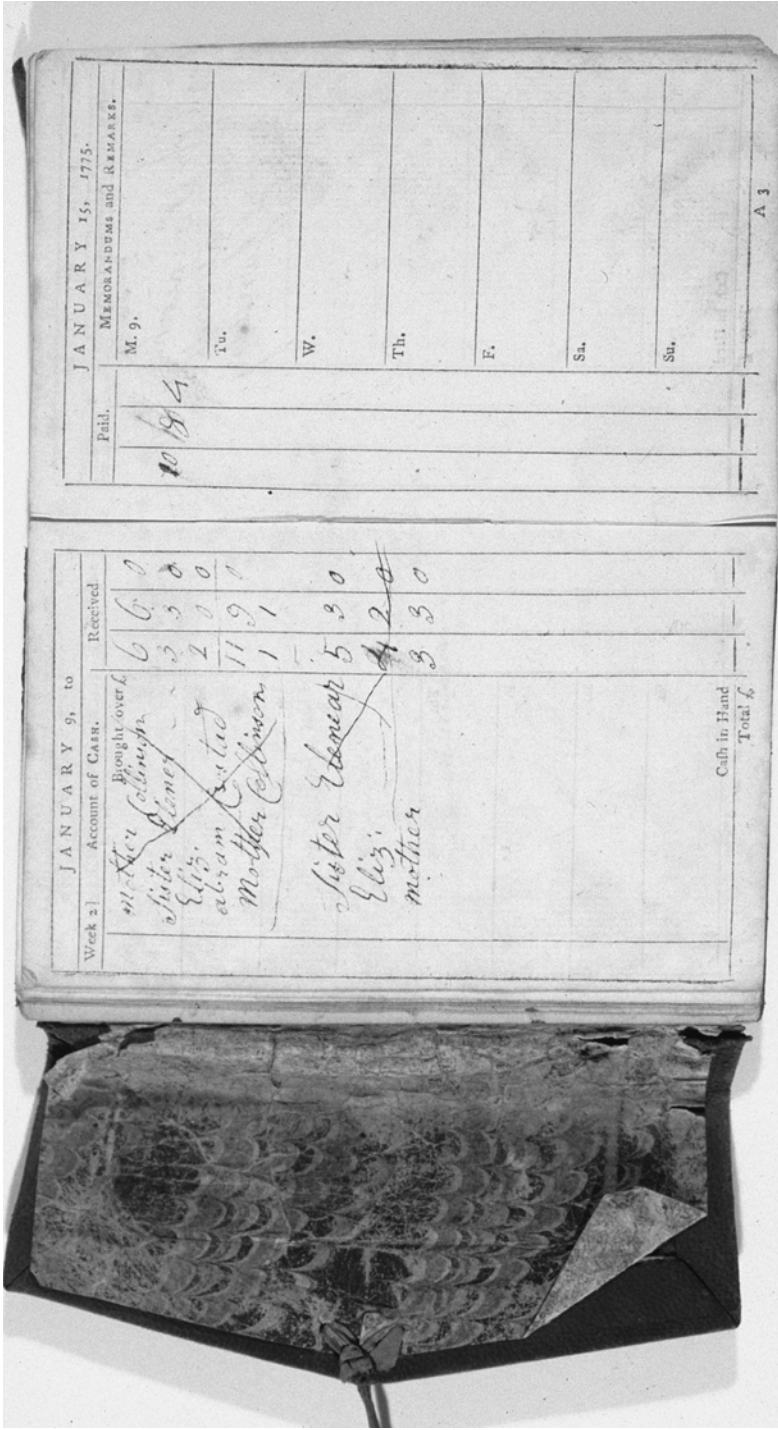 JANUARY 9, to
Week 2] Account of CASH. Received
Brought over £
Mother Collinson 6 6 0
Sister Elener 3 3 0
Eliz. 2 0 0
abram 11 9 0
Mother Collinson 1 1
Sister Elenear 5 3 0
Eliz: 2 0
mother 3 3 0
Cash in Hand
Total £
JANUARY 15, 1775.
Paid. MEMORANDUMS and REMARKS.
10 18 4 M. 9.
Tu.
W.
Th.
F.
Sa.
Su.
A 3